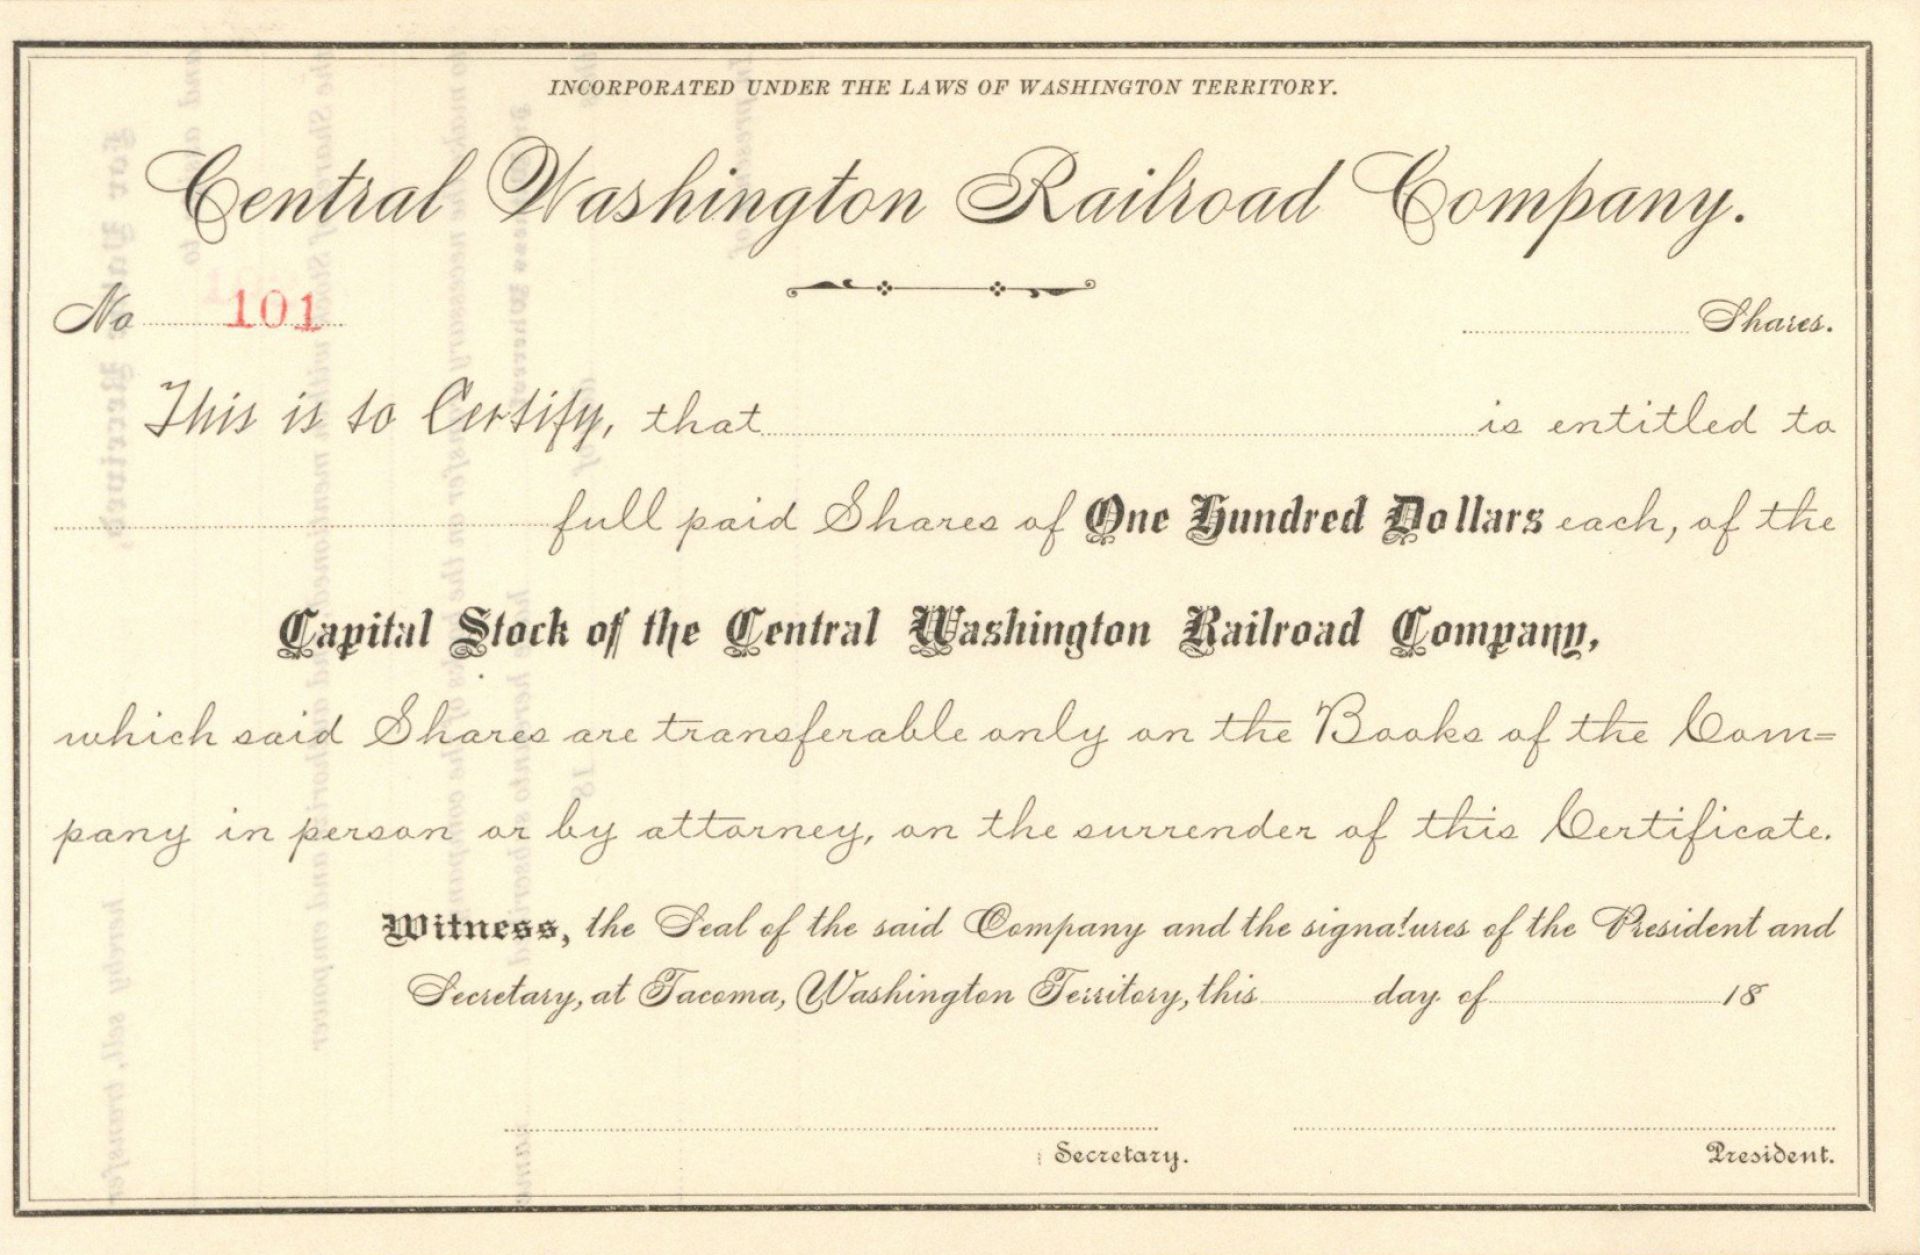 INCORPORATED UNDER THE LAWS OF WASHINGTON TERRITORY.
Central Washington Railroad Company.
No 101 Shares.
This is to Certify, that is entitled to
full paid Shares of One Hundred Dollars each, of the
Capital Stock of the Central Washington Railroad Company,
which said Shares are transferable only on the Books of the Com=
pany in person or by attorney, on the surrender of this Certificate.
Witness, the Seal of the said Company and the signatures of the President and
Secretary, at Tacoma, Washington Territory, this day of 18
Secretary. President.